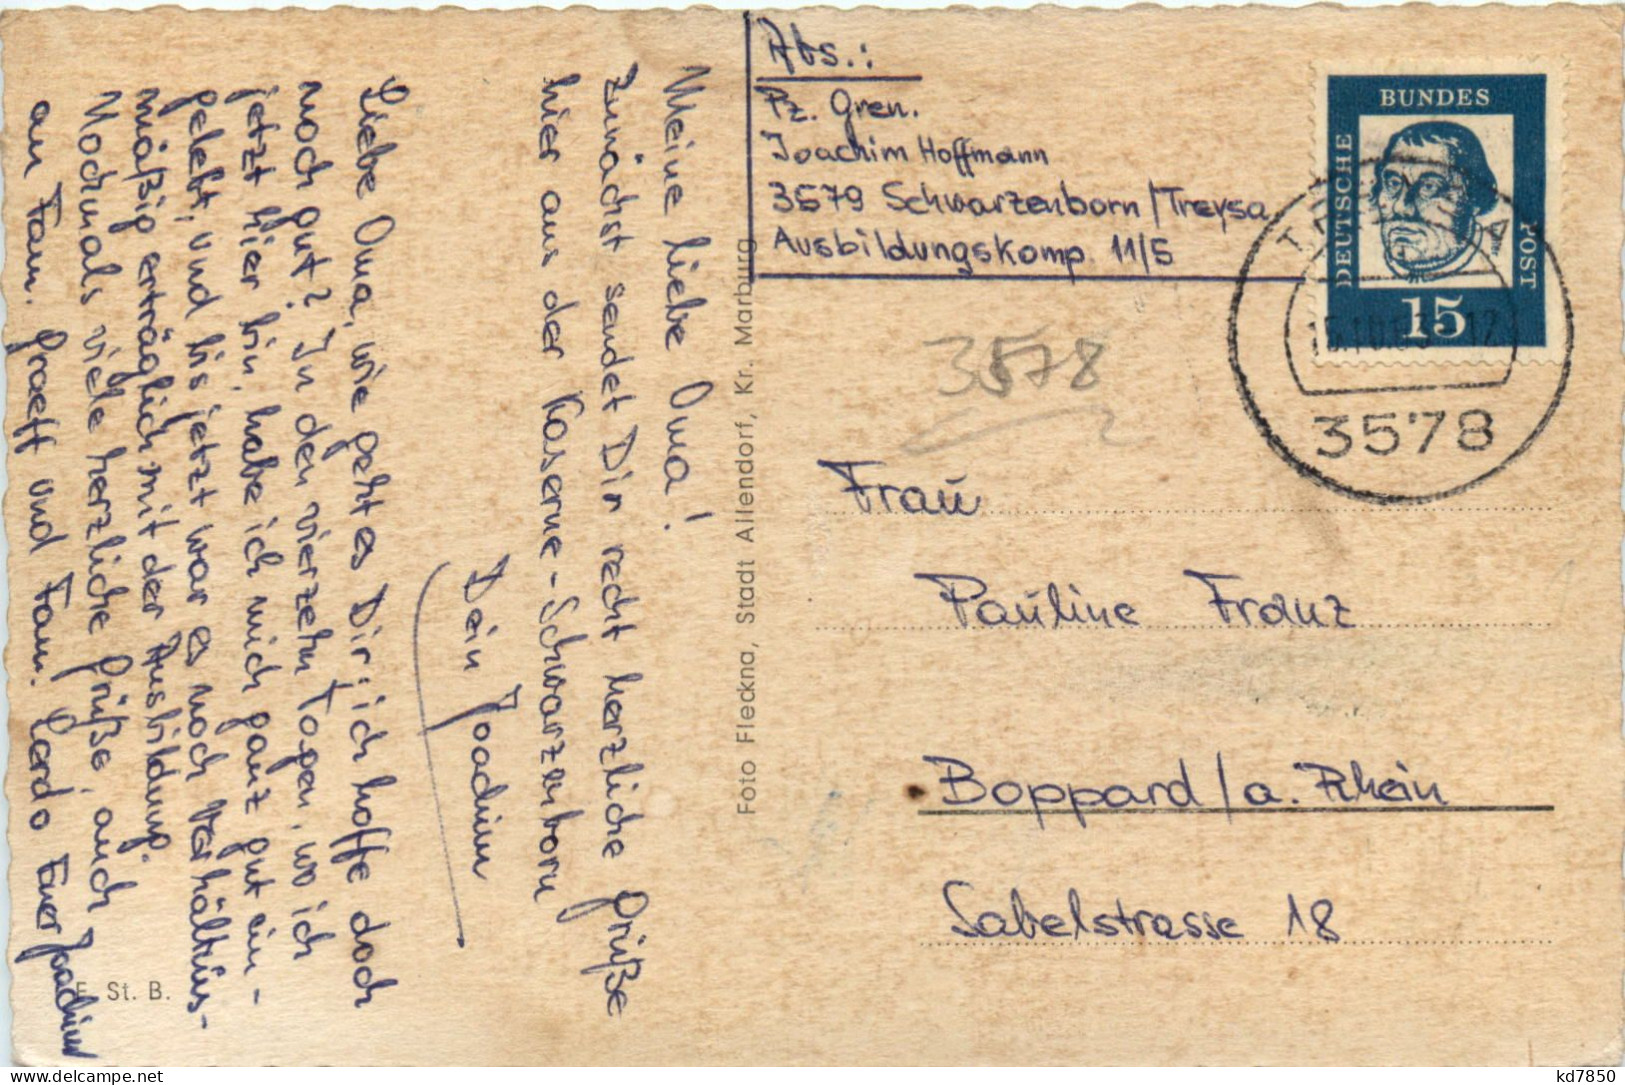 Abs.:
Pz. Gren.
Joachim Hoffmann
3579 Schwarzenborn/Treysa
Ausbildungskomp. 11/5
BUNDES
DEUTSCHE
POST
15
3578
3578
Frau
Pauline Franz
Boppard/a. Rhein
Sabelstrasse 18
Foto Fleckna, Stadt Allendorf, Kr. Marburg
Meine liebe Oma!
Zunächst sendet Dir recht herzliche Grüße
hier aus der Kaserne-Schwarzenborn
Dein Joachim
Liebe Oma, wie geht es Dir; ich hoffe doch
noch gut? In den vierzehn Tagen, wo ich
jetzt hier bin, habe ich mich ganz gut ein-
gelebt, und bis jetzt war es noch verhältnis-
mäßig erträglich mit der Ausbildung.
Nochmals viele herzliche Grüße, auch
an Fam. Graeff und Fam. Euer Joachim
E. St. B.
kd7850